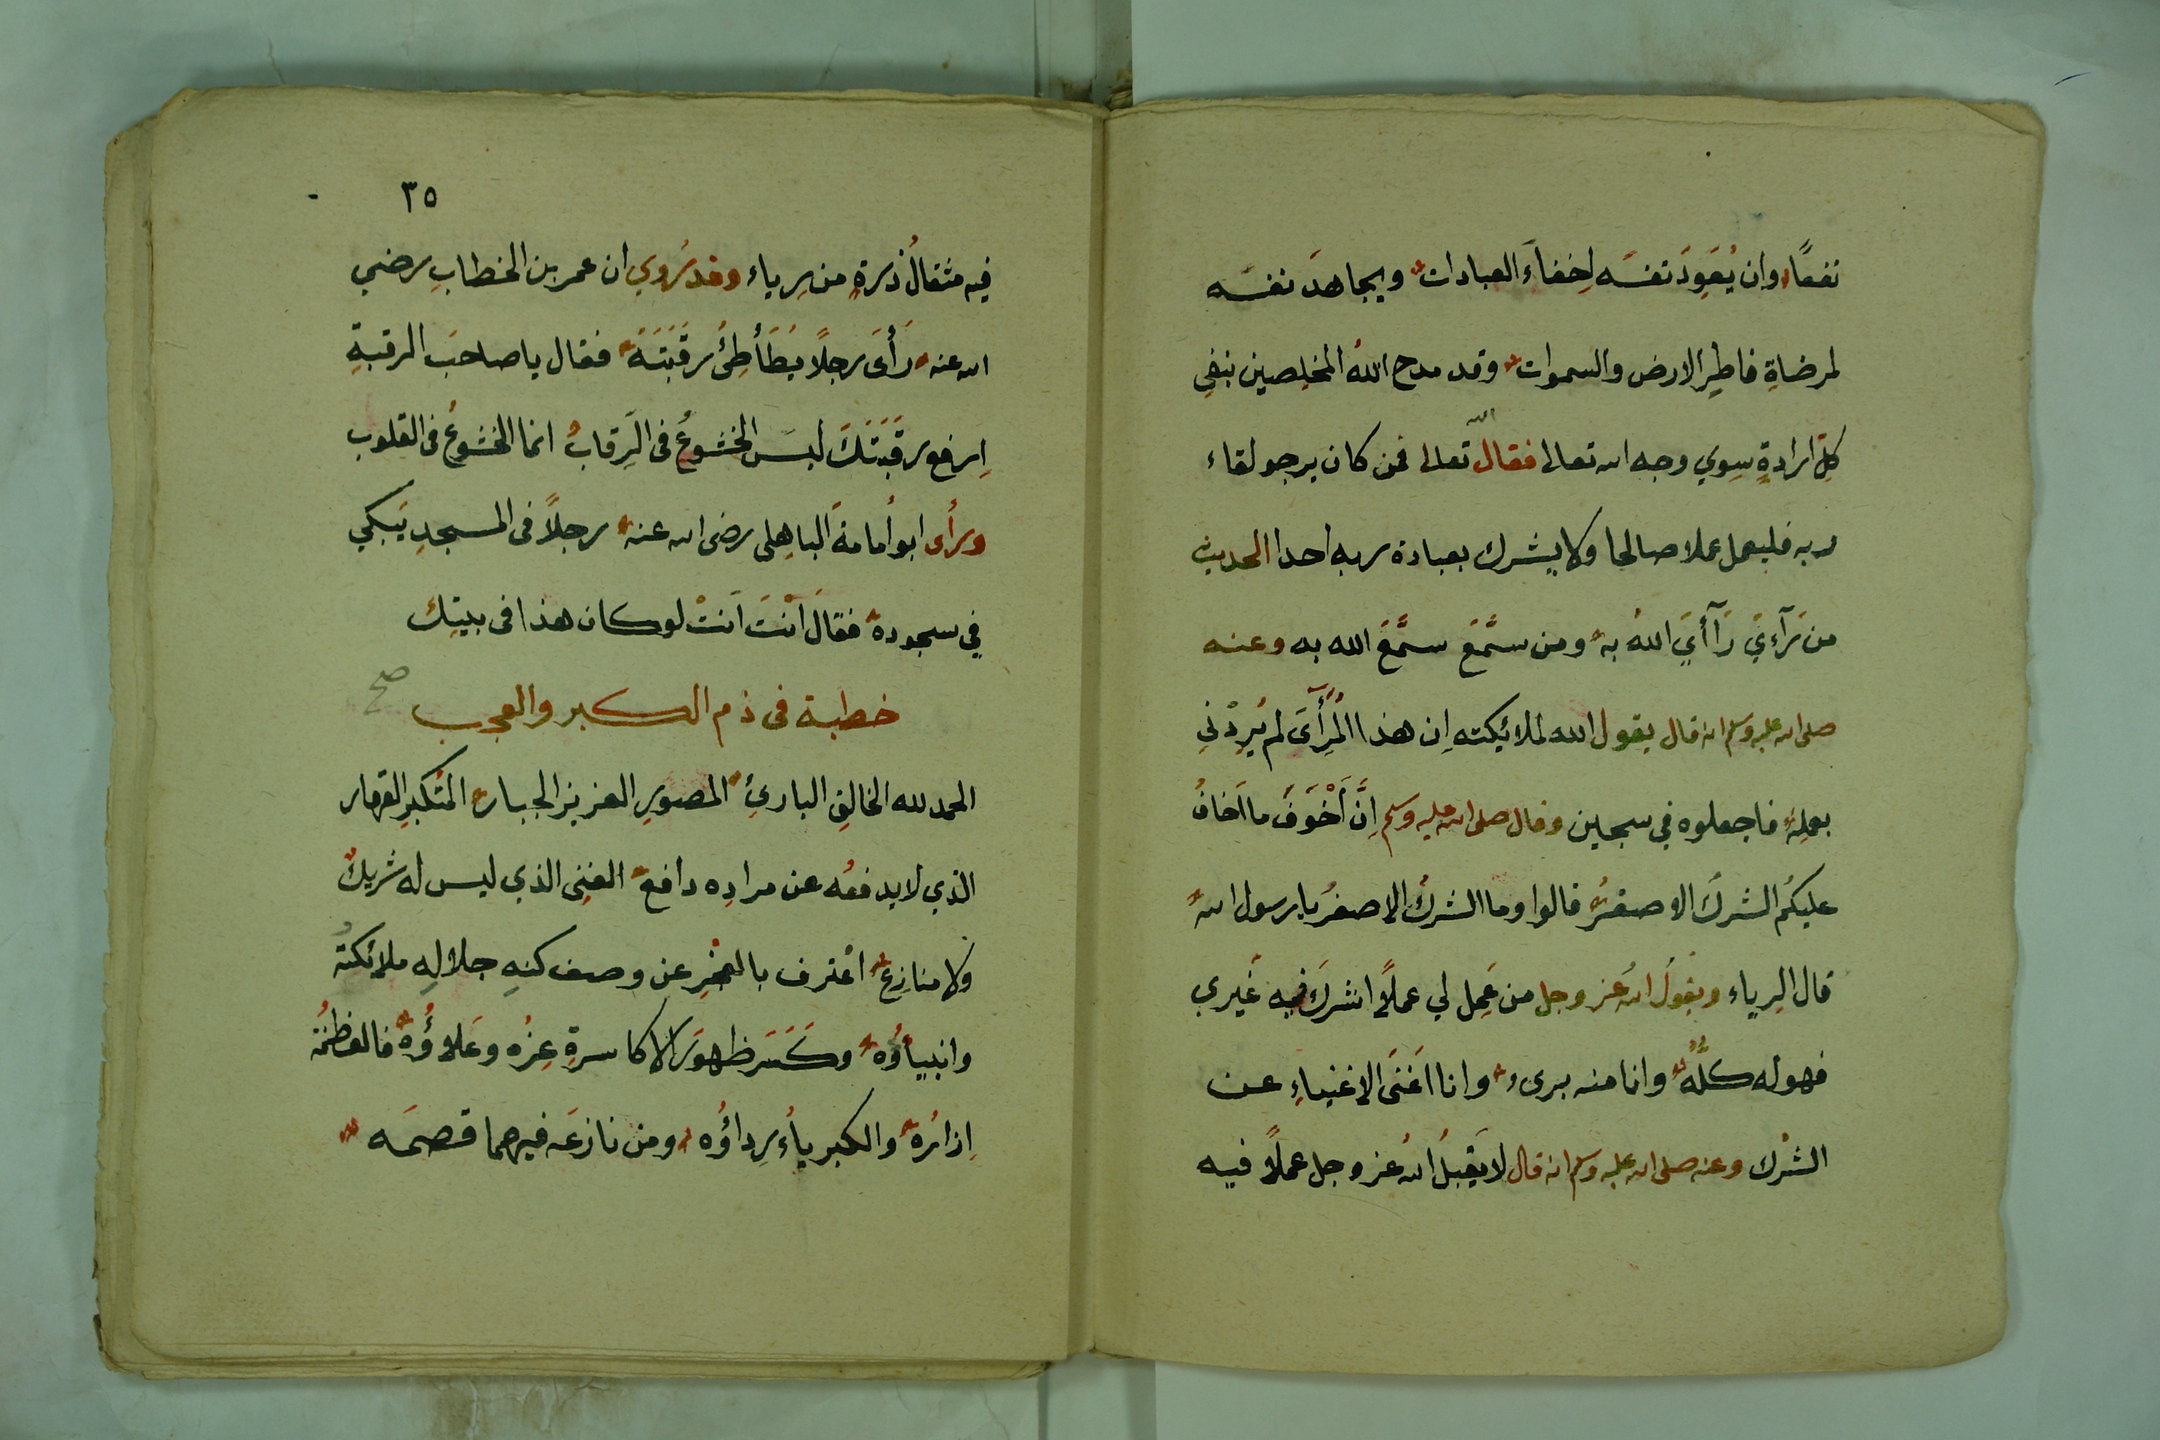 نفعًا وان يُعَوِدَ نفسَه لِخفاَء العبادات ويجاهدَ نفسَه
لمرضاةِ فاطِرِ الارض والسموات وقد مدح اللهُ المخلِصين بنفي
كلِّ ارادةٍ سِوي وجه الله تعالى فقال الله تعالى فمن كان يرجو لقاء
ربه فليعمل عملا صالحا ولا يشرك بعبادة ربه احدا الحديث
من رَآءيَ رَآأَيَ اللهُ به ومن سمَّعَ سمَّعَ الله به وعنه
صلى الله عليه وسلم انه قال يقول الله لملائيكته اِن هذا المُرِأَىَ لم يُرِدْني
بعملِهِ فاجعلوه في سجين وقال صلى الله عليه وسلم اِنَّ أَخْوَفَ ما اَخافُ
عليكُم الشركَ الاصغرُ قالوا وما الشركُ الاصغرُ يا رسول الله
قال الرِياء ويقولُ الله عز وجل من عَمِل لي عملًا اشركَ فيه غيري
فهو له كلُّه وانا منه برىء وانا اَغنَى الاغنياءِ عن
الشرْك وعنه صلى الله عليه وسلم انه قال لا يَقبلُ الله عز وجل عملًا فيه
٣٥
فيه مثقالُ ذرةٍ من رِياء وقد رُوي ان عمر بن الخطابِ رضي
الله عنه رَأَىَ رجلًا يُطَأْطِئُ رقَبَتَهُ فقال يا صاحبَ الرقبةِ
اِرفع رقَبَتَكَ ليسَ الخشوعُ فى الرِقابِ انما الخشوعُ فى القلوب
ورأى ابو اُمامةَ الباهِلى رضى الله عنه رجلًا فى المسجدِ يَبكي
في سجوده فقالَ اَنْتَ اَنتْ لو كان هذا فى بيتِك
خطبة فى ذم الكبر والعجب صح
الحمد لله الخالِقِ البارئِ المصورِ العزيز الجبار المُتكبرِ القهار
الذي لا يدفعُه عن مرادِه دافع الغنِى الذي ليس له شريكٌ
ولا منازِع اعْترف بالعجْزِ عن وصف كنهِ جلالِهِ ملائكتُه
وانبياؤُه وكَسَر ظهورَ الاكاسرةِ عِزُه وعَلاؤُهُ فالعظَمُة
اِزارُه والكبرياُء رِداؤُه ومن نازعَه فيهما قصمَه